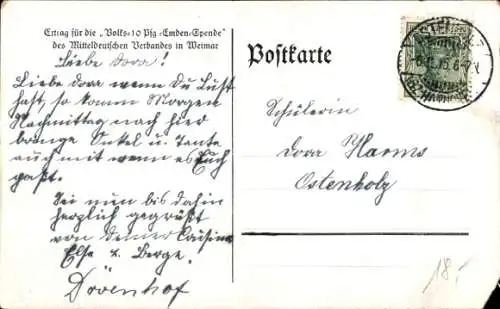 Ertrag für die „Volks=10 Pfg=Emden=Spende"
des Mitteldeutschen Verbandes in Weimar
Postkarte
Liebe Dora!
Liebe Dora wenn Du Lust
hast, so komm Morgen
Nachmittag nach hier
bringe Onkel u. Tante
auch mit wenn es Euch
paßt.
Sei nun bis dahin
herzlich gegrüßt
von deiner Cousine
Else z. Berge.
Dövenhof
Schülerin
Dora Harms
Ostenholz
18,-